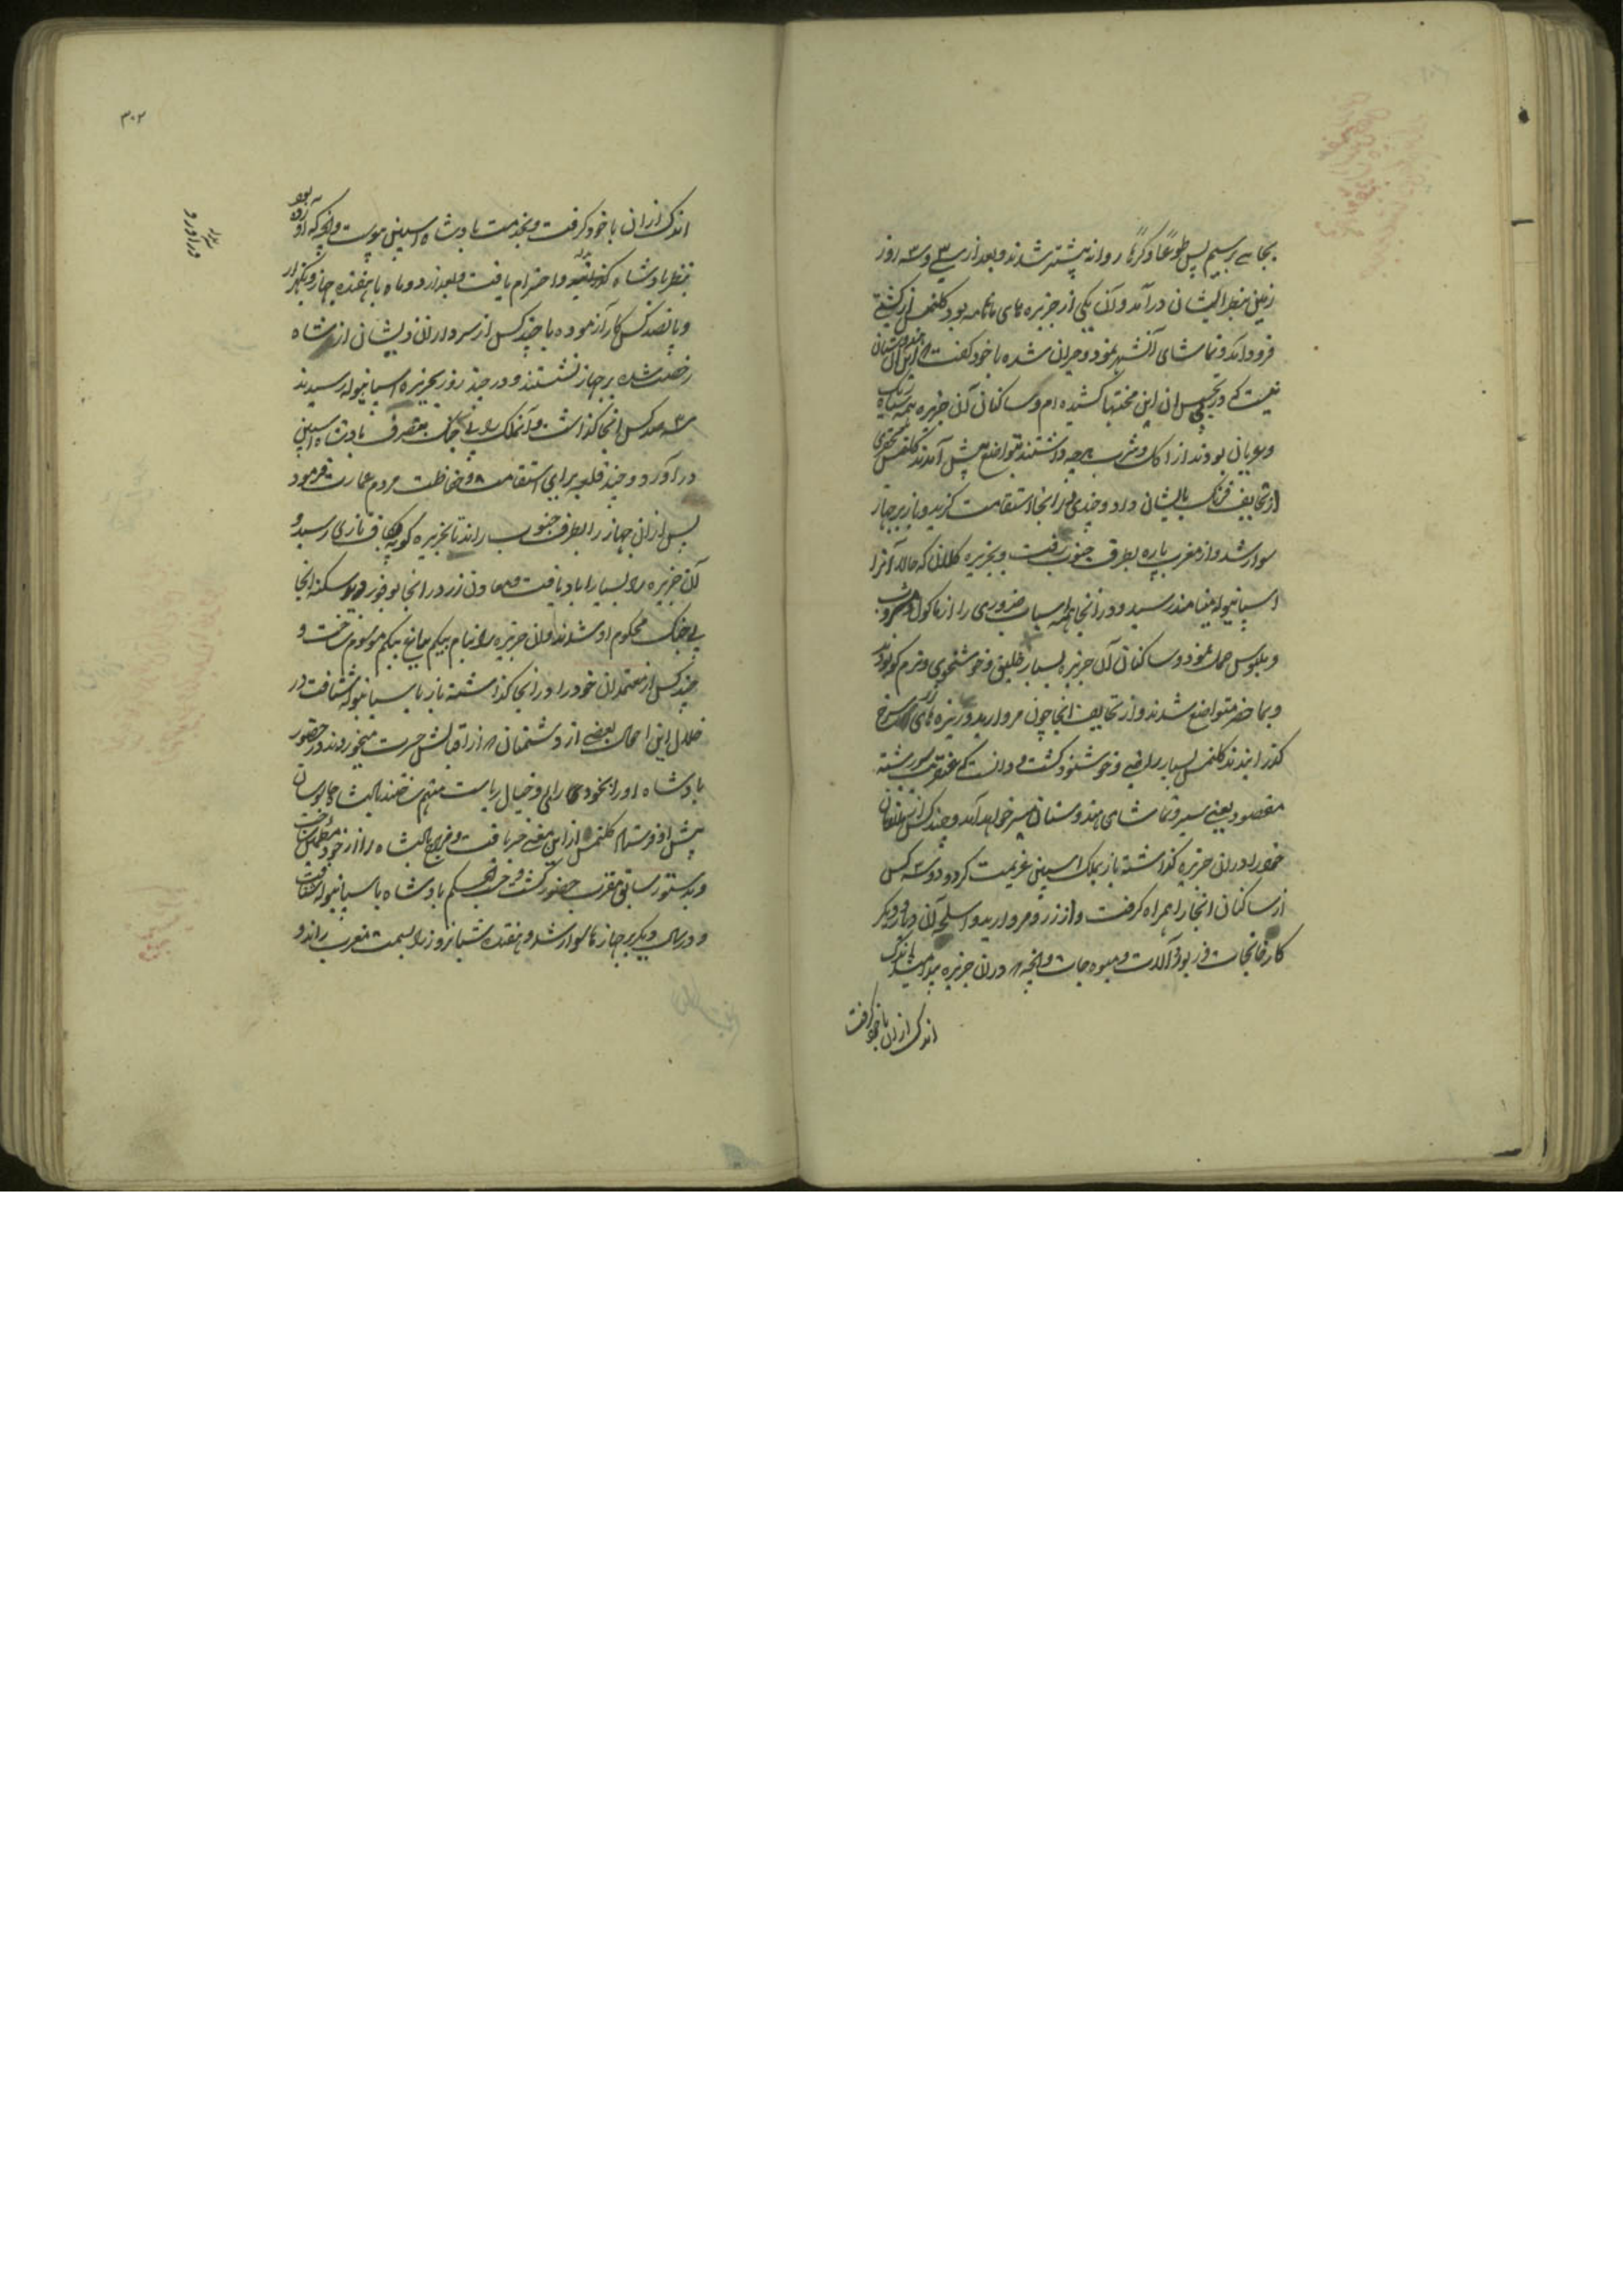 بجاے برسیم پس طوعًا و کرهًا روانه پیشتر شدند و بعد از سے و سه روز
زمین بنظر ایشان در آمد و آن یکی از جزیره های بود کلنمس از کشتے
فرود آمد و تماشای آنشهر نمود و حیران شده با خود گفت این آن هندوستان
نیست که در تجسس ان این محنتها کشیده ام و ساکنان آن جزیره همه سیاه رنگ
و عریان بودند از اکل و شرب هرچه داشتند بتواضع پیش آمدند کلنمس
از تحایف فرنگ بایشان داد و چندی در انجا استقامت گزید و باز بر جهاز
سوار شد و از مغرب پاره بطرف جنوب رفت و بجزیره کلان که حالا آنرا
اسپانیوله مینامند رسید و در انجا همه اسباب ضروری را از ماکول و مشروب
و ملبوس حمل نمود و ساکنان آن جزیره بسیار خلیق و خوشخوی و نرم گو بودند
و بما حضر متواضع شدند و از تحایف انجا چون مروارید و ریزه های زر سرخ
گذرانیدند کلنمس بسیار راضے و خوشنود گشت و دانست که عنقریب سر رشته
مقصود یعنے سیر و تماشای هندوستان میسر خواهد آمد و چند کس از متعلقان
خود را در ان جزیره گذاشته باز بملک اسپین عزیمت کرد و دو سه کس
از ساکنان انجا را همراه گرفت و از زر و مروارید و اسلحه آن دیار و دیگر
کارخانجات و زیور و آلات و میوه جات و انچه در ان جزیره پیدا میشد اندک
اندک از ان با خود گرفت
۳۰۲
اندک از ان با خود گرفت و بخدمت بادشاه اسپین پیوست و انچه که آورده بود
بنظر بادشاه گذرانید و احترام یافت و بعد از دو ماه با هفده جهاز و یکهزار
و پانصد کس کار آزموده با چند کس از سرداران ذیشان از شاه
رخصت شده بر جهاز نشستند و در چند روز بجزیره اسپانیوله رسیدند
سه صد کس انجا گذاشت و آنملک را بے جنگ بتصرف بادشاه اسپین
در آورد و چند قلعه برای استقامت و حفاظت مردم عمارت فرمود
پس از ان جهاز را بطرف جنوب راند تا بجزیره کوبه بکاف تازی رسید و
آن جزیره را بسیار اباد یافت و معادن زر در انجا بوفور دید سکنه انجا
بے جنگ محکوم او شدند و ان جزیره را بنام موسوم ساخت و
چند کس از معتمدان خود را در انجا گذاشته باز باسپانیوله شتافت در
خلال این احوال بعضے از دشمنان از اقبالش حسرت میخوردند در حضور
بادشاه او را بخود رائی و خیال ریاست متهم ساختند بادشاه جاسوسان
پیش او فرستاد کلنمس از این معنے خبر یافت و مزاج بادشاه را از خود مطمئن ساخت
و بدستور سابق مقرب حضور گشت و حسب الحکم بادشاه باسپانیوله شتافت
و در سال دیگر بر جهاز ها سوار شد و هفده شبانروز را بسمت مغرب راند و